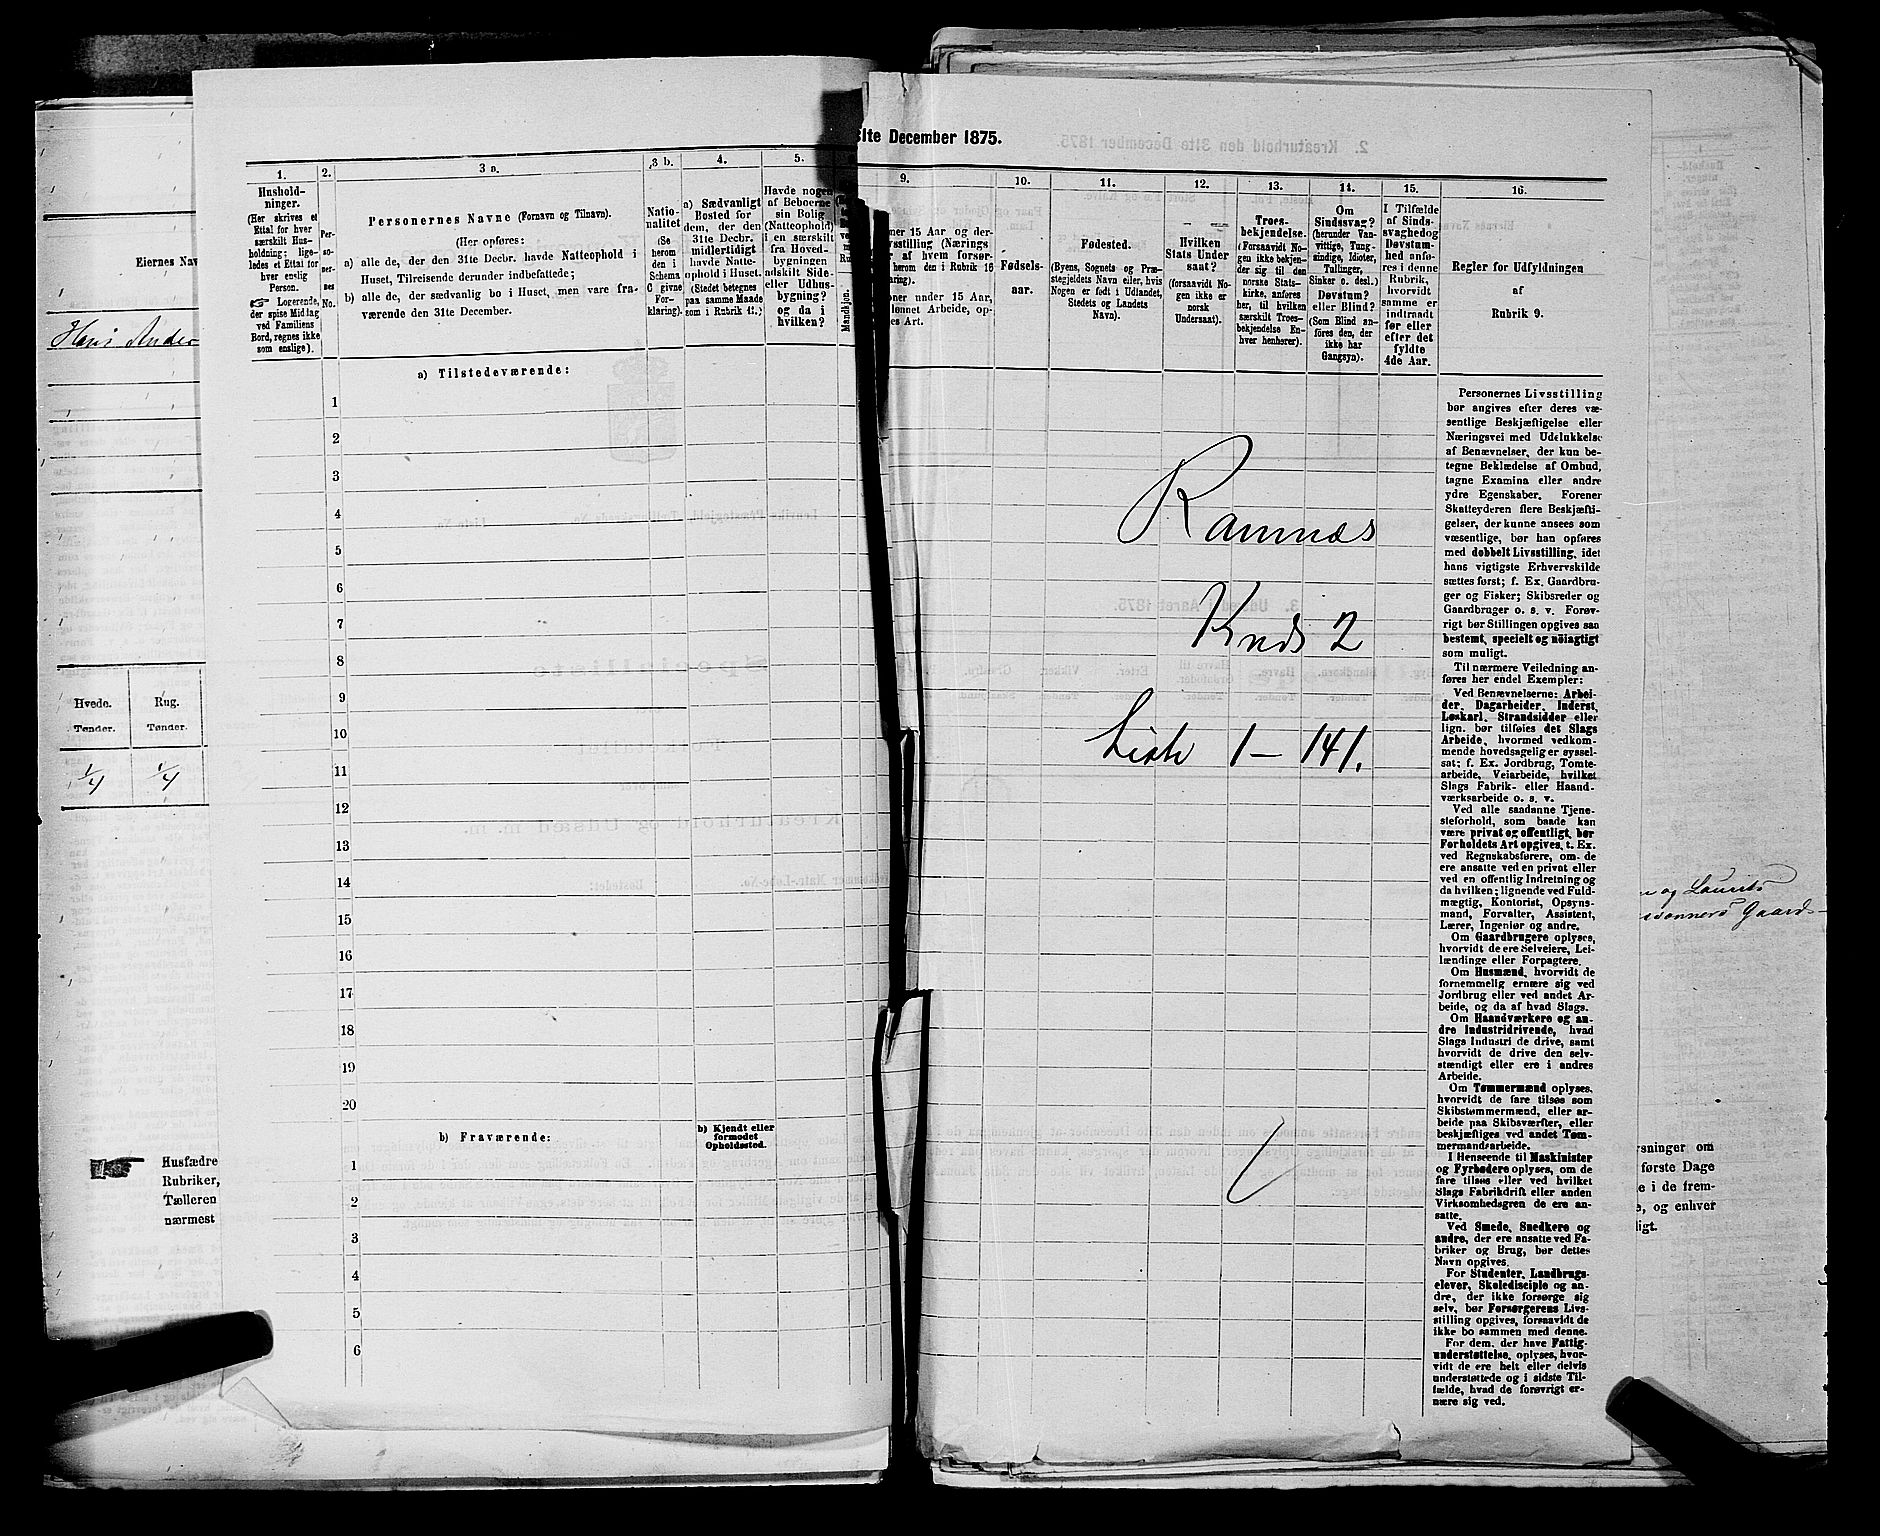 31te December 1875.
1.
Hushold-
ninger.
(Her skrives et
Ettal for hver
særskilt Hus-
holdning; lige-
ledes et Ettal for
hver enslig
Person.
☞ Logerende,
der spise Middag
ved Familiens
Bord, regnes ikke
som enslige).
2.
Per-
so-
ner-
nes
No.
3 a.
Personernes Navne (Fornavn og Tilnavn).
(Her opføres:
a) alle de, der den 31te Decbr. havde Natteophold i
Huset, Tilreisende derunder indbefattede;
b) alle de, der sædvanlig bo i Huset, men vare fra-
værende den 31te December.
3 b.
Natio-
nalitet
(Se
herom
den i
Schema
C givne
For-
klaring).
4.
a) Sædvanligt
Bosted for
dem, der den
31te Decbr.
midlertidigt
havde Natte-
ophold i Huset.
(Stedet betegnes
paa samme Maade
som i Rubrik 11.)
5.
Havde nogen
af Beboerne
sin Bolig
(Natteophold)
i en særskilt
fra Hoved-
bygningen
adskilt Side-
eller Udhus-
bygning?
og da i
hvilken?
Mandkjøn.
9.
ner 15 Aar og der-
vsstilling (Nærings
r af hvem forsør-
herom den i Rubrik 16
aring).
oner under 15 Aar,
lønnet Arbeide, op-
es Art.
10.
Fødsels-
aar.
11.
Fødested.
(Byens, Sognets og Præ-
stegjeldets Navn eller, hvis
Nogen er født i Udlandet,
Stedets og Landets
Navn).
12.
Hvilken
Stats Under
saat?
(forsaavidt No-
gen ikke er
norsk
Undersaat).
13.
Troes-
bekjendelse.
(Forsaavidt No-
gen ikke bekjen-
der sig til den
norske Stats-
kirke, anføres
her, til hvilken
særskilt Troes-
bekjendelse En-
hver henhører).
14.
Om
Sindssvag?
(herunder Van-
vittige, Tung-
sindige, Idioter,
Tullinger,
Sinker o. desl.)
Døvstum?
eller Blind?
(Som Blind an-
føres den, der
ikke har
Gangsyn).
15.
I Tilfælde
af Sinds-
svaghed og
Døvstum-
hed anfø-
res i denne
Rubrik,
hvorvidt
samme er
indtraadt
før eller
efter det
fyldte
4de Aar.
16.
Regler for Udfyldningen
af
Rubrik 9.
a) Tilstedeværende:
1
2
3
4
5
6
7
8
9
10
11
12
13
14
15
16
17
18
19
20
b) Fraværende:
b) Kjendt eller
formodet
Opholdssted.
1
2
3
4
5
6
Ramnæs
Knds 2
Liste 1 – 141.
Personernes Livsstilling
bør angives efter deres væ-
sentlige Beskjæftigelse eller
Næringsvei med Udelukkelse
af Benævnelser, der kun be-
tegne Beklædelse af Ombud,
tagne Examina eller andre
ydre Egenskaber. Forener
Skatteyderen flere Beskjæfti-
gelser, der kunne ansees som
væsentlige, bør han opføres
med dobbelt Livsstilling, idet
hans vigtigste Erhvervskilde
sættes først; f. Ex. Gaardbru-
ger og Fisker; Skibsreder og
Gaardbruger o. s. v. Forøv-
rigt bør Stillingen opgives saa
bestemt, specielt og nöiagtigt
som muligt.
Til nærmere Veiledning an-
føres her endel Exempler:
Ved Benævnelserne: Arbei-
der, Dagarbeider, Inderst,
Løskarl, Strandsidder eller
lign. bør tilføies det Slags
Arbeide, hvormed vedkom-
mende hovedsagelig er syssel-
sat; f. Ex. Jordbrug, Tomte-
arbeide, Veiarbeide, hvilket
Slags Fabrik- eller Haand-
værksarbeide o. s. v.
Ved alle saadanne Tjene-
steforhold, som baade kan
være privat og offentligt, bør
Forholdets Art opgives, t. Ex.
ved Regnskabsførere, om de
ere ansatte ved en privat eller
ved en offentlig Indretning og
da hvilken; lignende ved Fuld-
mægtig, Kontorist, Opsyns-
mand, Forvalter, Assistent,
Lærer, Ingeniør og andre.
Om Gaardbrugere oplyses,
hvorvidt de ere Selveiere, Lei-
lændinge eller Forpagtere.
Om Husmænd, hvorvidt de
fornemmelig ernære sig ved
Jordbrug eller ved andet Ar-
beide, og da af hvad Slags.
Om Haandværkere og an-
dre Industridrivende, hvad
Slags Industri de drive, samt
hvorvidt de drive den selv-
stændigt eller ere i andres
Arbeide.
Om Tømmermænd oplyses,
hvorvidt de fare tilsøs som
Skibstømmermænd, eller ar-
beide paa Skibsværfter, eller
beskjæftiges ved andet Tøm-
mermandsarbeide.
I Henseende til Maskinister
og Fyrbødere oplyses, om de
fare tilsøs eller ved hvilket
Slags Fabrikdrift eller anden
Virksomhedsgren de ere an-
satte.
Ved Smede, Snedkere og
andre, der ere ansatte ved Fa-
briker og Brug, bør dettes
Navn opgives.
For Studenter, Landbrugs-
elever, Skoledisciple og an-
dre, der ikke forsørge sig
selv, bør Forsørgerens Livs-
stilling opgives, forsaavidt de
ikke bo sammen med denne.
For dem, der have Fattig-
understøttelse, oplyses, hvor-
vidt de ere helt eller delvis
understøttede og i sidste Til-
fælde, hvad de forøvrigt er-
nære sig ved.
Eiernes Nav
Hans Ander
Hvede. Rug.
Tønder. Tønder.
1/4 1/4
☞ Husfædre
Rubriker,
Tælleren
nærmest
og Laurits
Gaards-
rsninger om
første Dage
e i de frem-
e, og enhver
ligt.